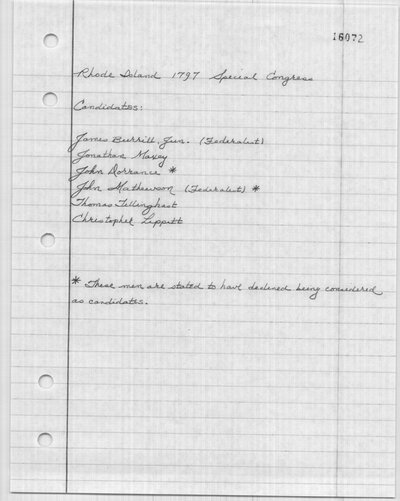 16072
Rhode Island 1797 Special Congress
Candidates:
James Burrill, Jun. (Federalist)
Jonathan Maxcy
John Dorrance *
John Mathewson (Federalist) *
Thomas Tillinghast
Christopher Lippitt
* These men are stated to have declined being considered
as candidates.